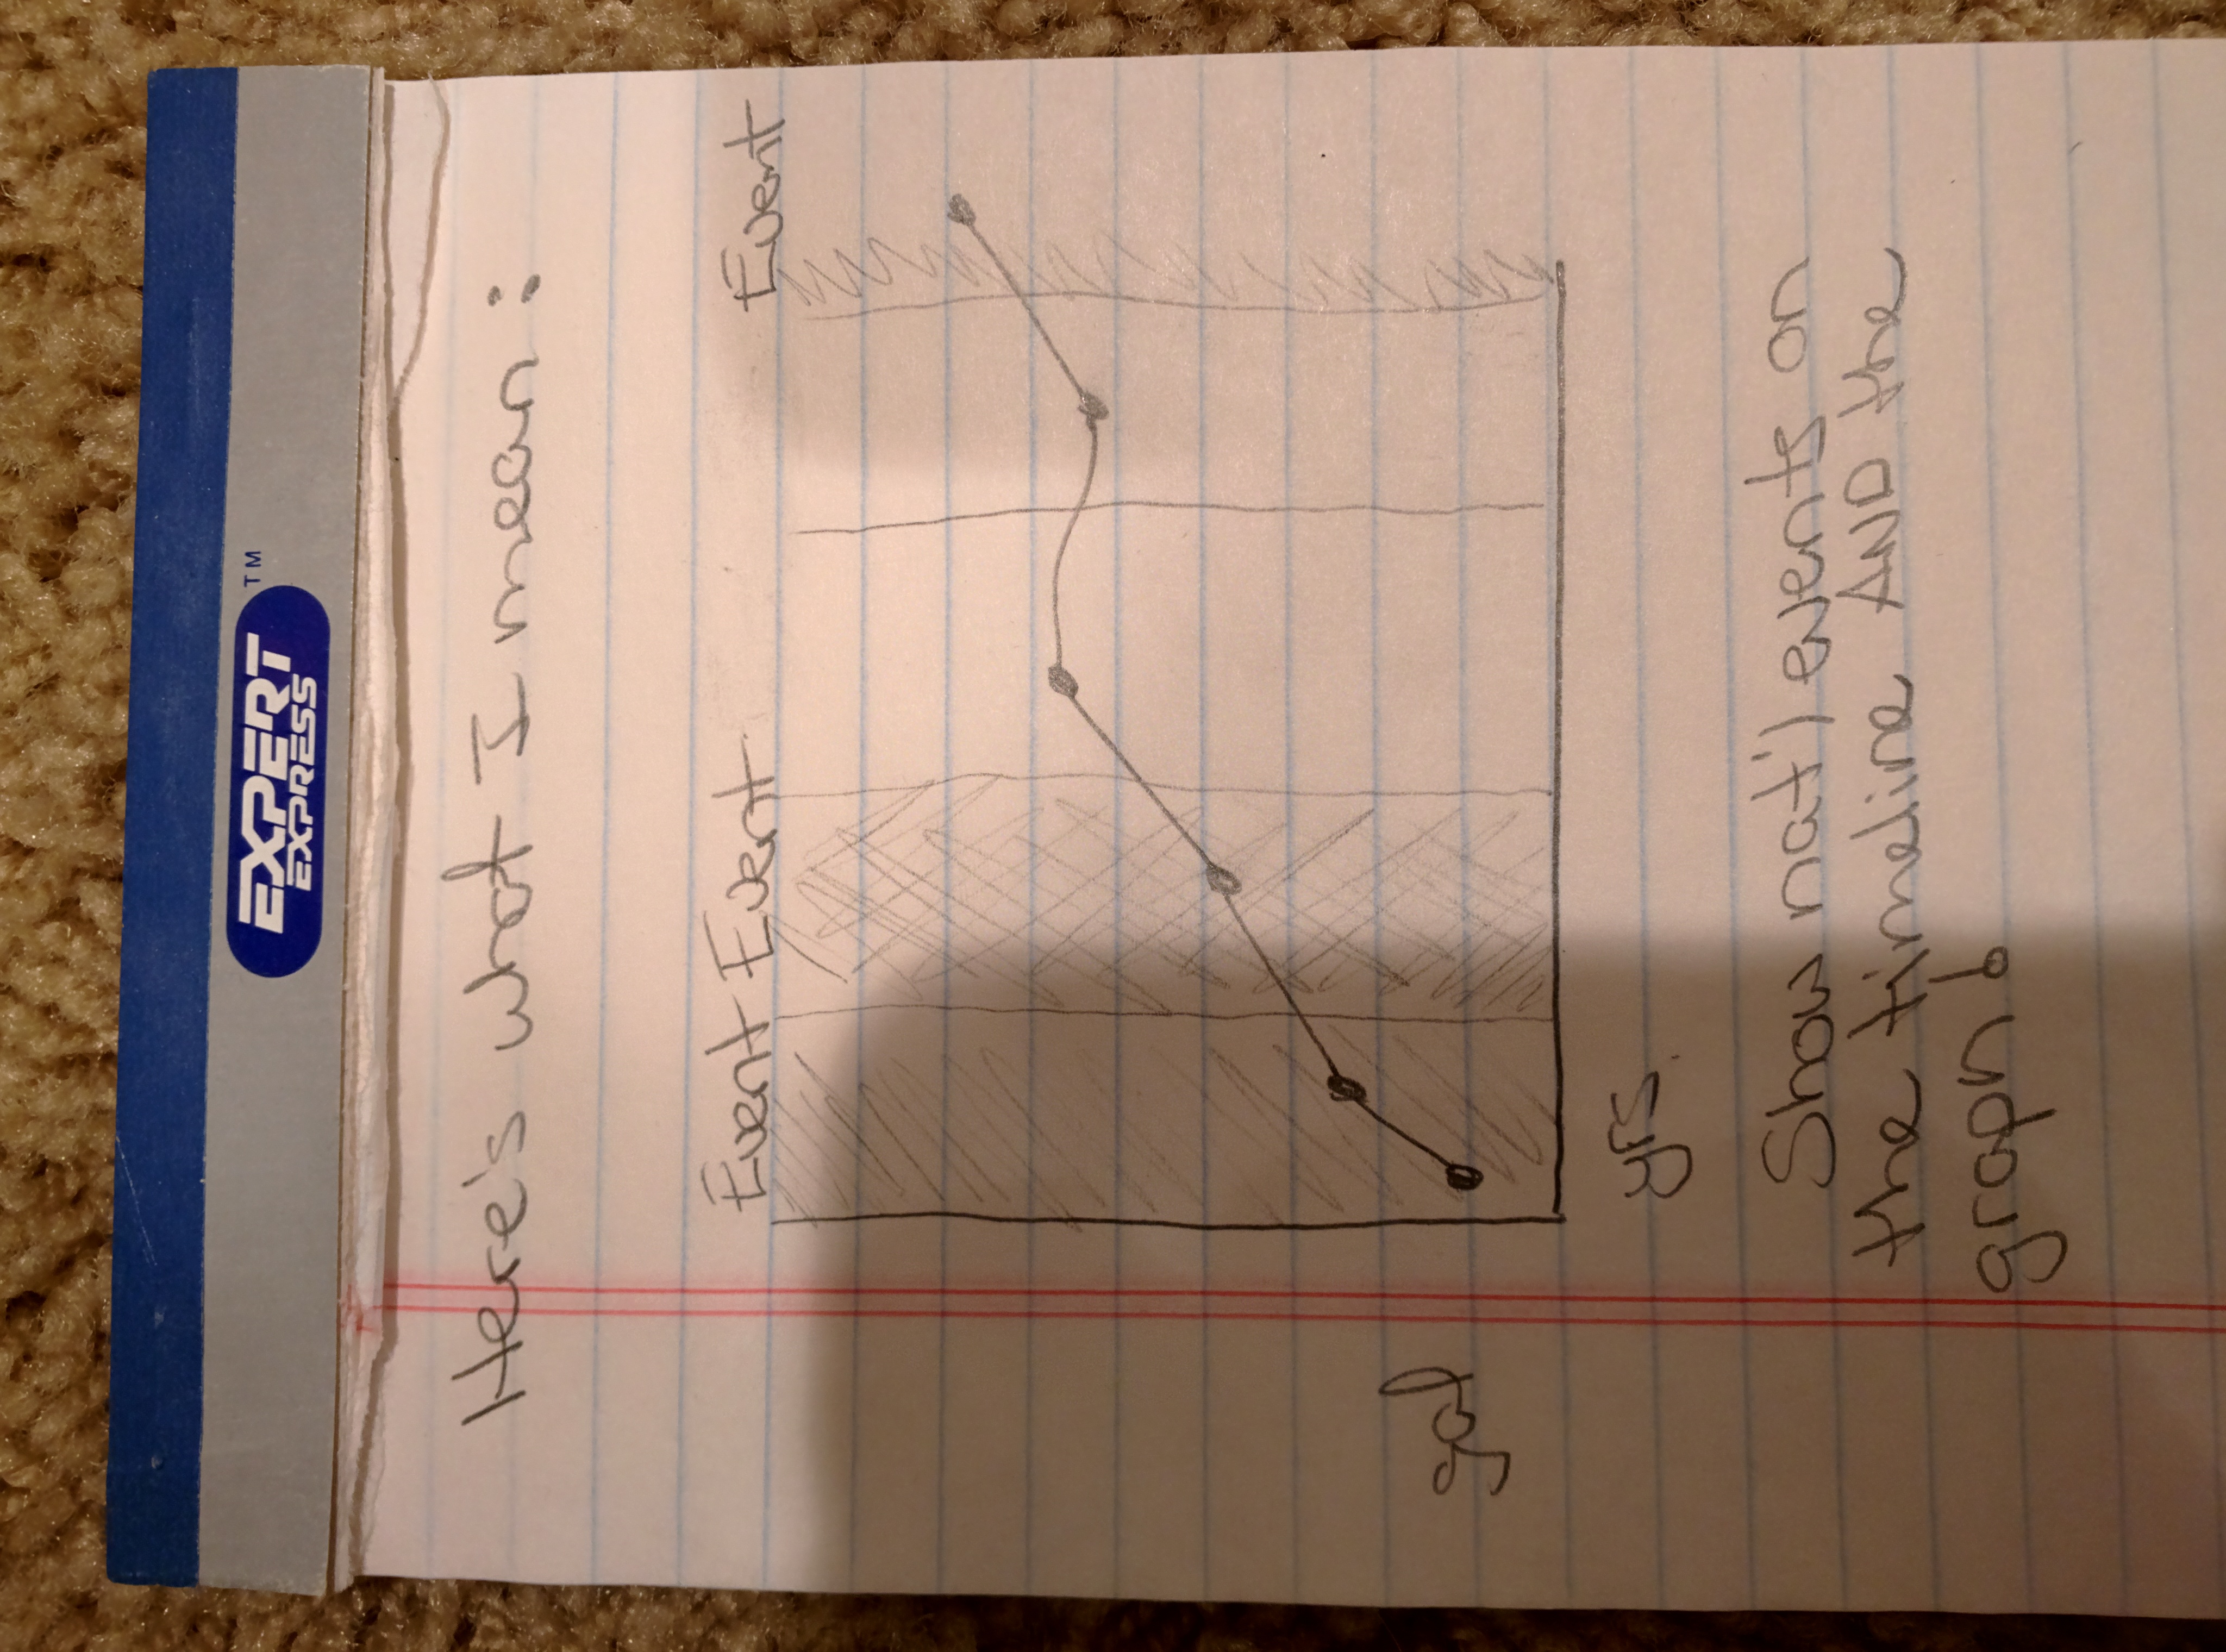 EXPERT™
EXPRESS
Here's what I mean:
Event Event Event
gal
yrs.
Show nat'l events on
the timeline AND the
graph